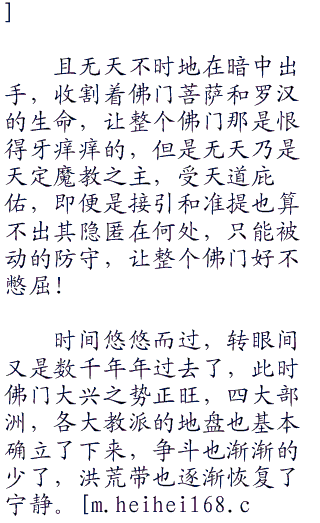 ]
且无天不时地在暗中出
手，收割着佛门菩萨和罗汉
的生命，让整个佛门那是恨
得牙痒痒的，但是无天乃是
天定魔教之主，受天道庇
佑，即便是接引和准提也算
不出其隐匿在何处，只能被
动的防守，让整个佛门好不
憋屈！
时间悠悠而过，转眼间
又是数千年年过去了，此时
佛门大兴之势正旺，四大部
洲，各大教派的地盘也基本
确立了下来，争斗也渐渐的
少了，洪荒带也逐渐恢复了
宁静。[m.heihei168.c